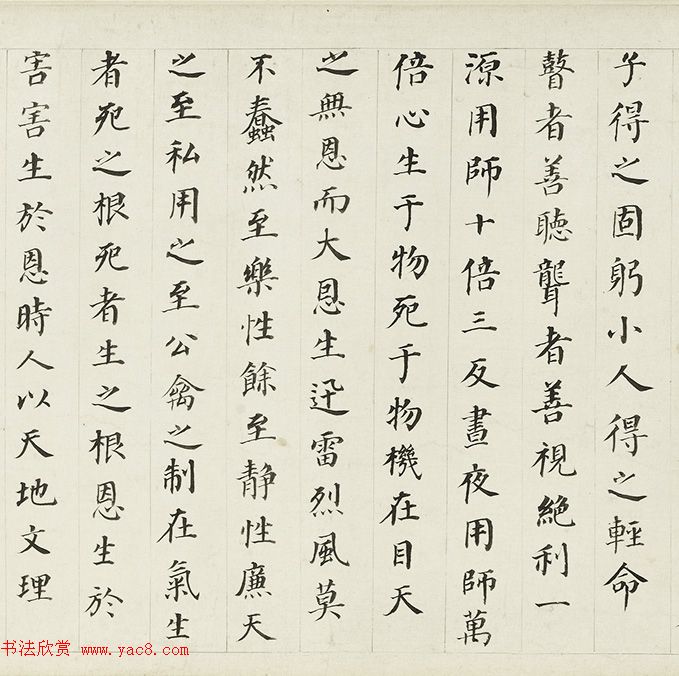 子得之固躬小人得之輕命
瞽者善聴聾者善視絶利一
源用師十倍三反晝夜用師萬
倍心生于物死于物機在目天
之無恩而大恩生迅雷烈風莫
不蠢然至樂性餘至静性廉天
之至私用之至公禽之制在氣生
者死之根死者生之根恩生於
害害生於恩時人以天地文理
书法欣赏 www.yac8.com